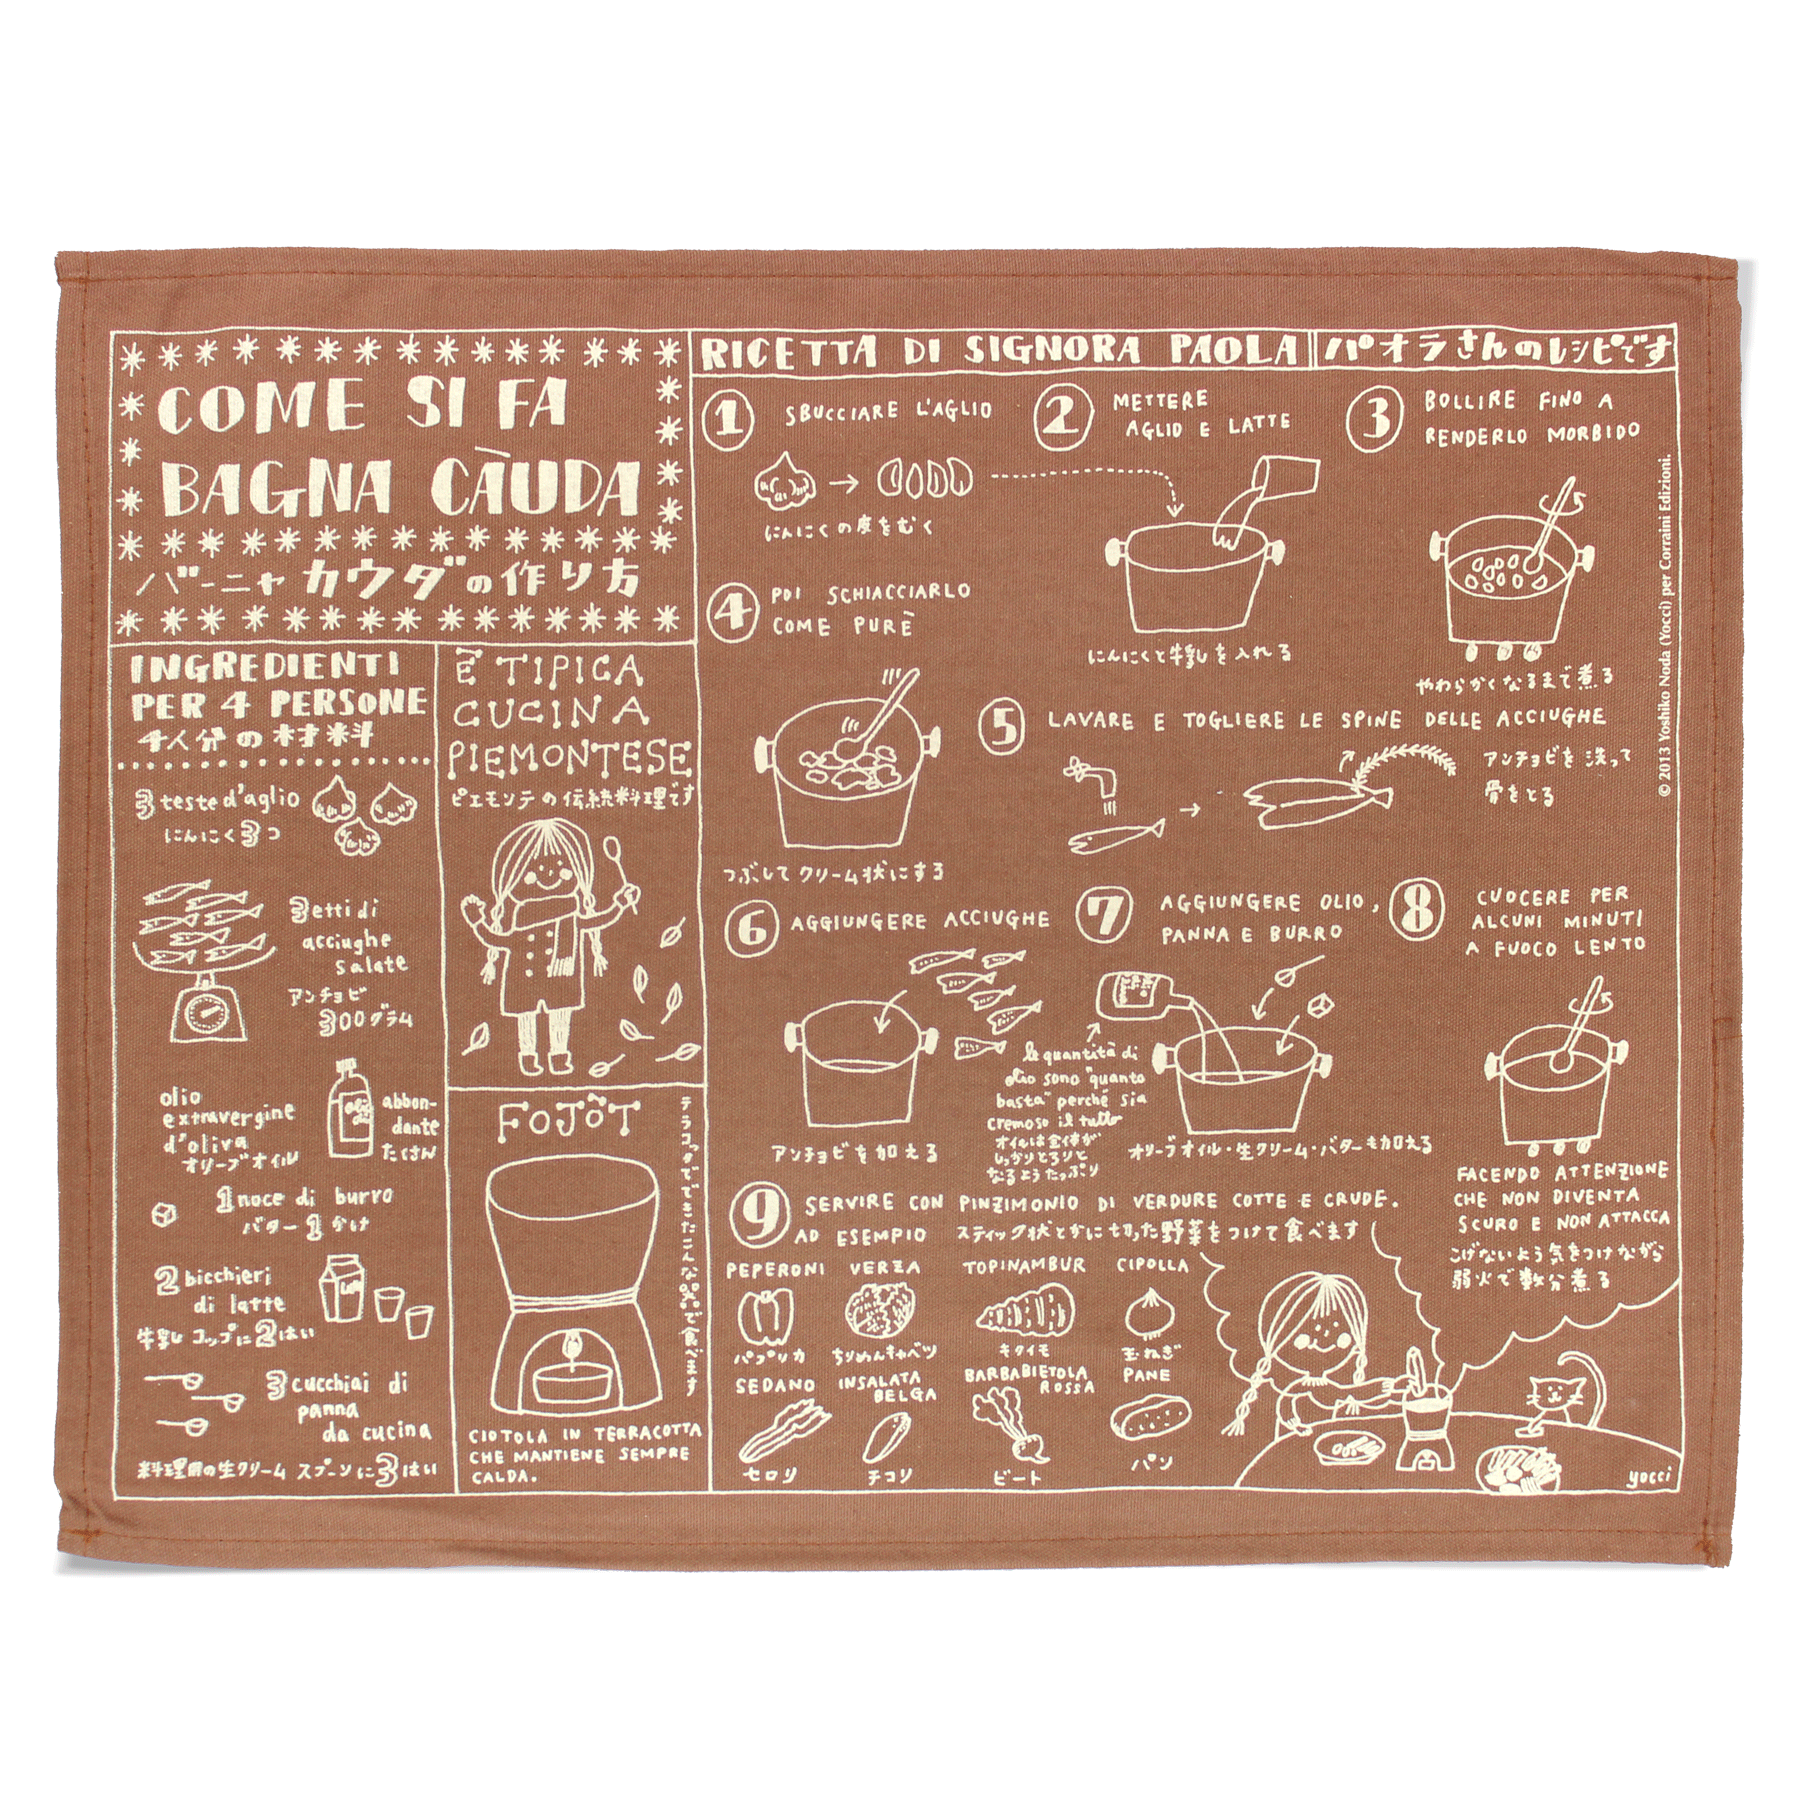 COME SI FA
BAGNA CÀUDA
バーニャカウダの作り方
INGREDIENTI
PER 4 PERSONE
4人分の材料
3 teste d'aglio
にんにく3つ
3 etti di
acciughe
salate
アンチョビ
300グラム
olio
extravergine
d'oliva
オリーブオイル
abbon-
dante
たくさん
1 noce di burro
バター1かけ
2 bicchieri
di latte
牛乳 コップに2はい
3 cucchiai di
panna
da cucina
料理用の生クリーム スプーンに3はい
È TIPICA
CUCINA
PIEMONTESE
ピエモンテの伝統料理です
FOJÒT
テラコッタでできたこんな器で食べます
CIOTOLA IN TERRACOTTA
CHE MANTIENE SEMPRE
CALDA.
RICETTA DI SIGNORA PAOLA
パオラさんのレシピです
1 SBUCCIARE L'AGLIO
にんにくの皮をむく
2 METTERE
AGLIO E LATTE
にんにくと牛乳を入れる
3 BOLLIRE FINO A
RENDERLO MORBIDO
やわらかくなるまで煮る
4 POI SCHIACCIARLO
COME PURÈ
つぶしてクリーム状にする
5 LAVARE E TOGLIERE LE SPINE DELLE ACCIUGHE
アンチョビを洗って
骨をとる
6 AGGIUNGERE ACCIUGHE
アンチョビを加える
7 AGGIUNGERE OLIO,
PANNA E BURRO
le quantità di
olio sono "quanto
basta" perché sia
cremoso il tutto
オイルは全体が
しっかりとろりと
なるようたっぷり
オリーブオイル・生クリーム・バターも加える
8 CUOCERE PER
ALCUNI MINUTI
A FUOCO LENTO
FACENDO ATTENZIONE
CHE NON DIVENTA
SCURO E NON ATTACCA
こげないよう気をつけながら
弱火で数分煮る
9 SERVIRE CON PINZIMONIO DI VERDURE COTTE E CRUDE.
AD ESEMPIO スティック状とかに切った野菜をつけて食べます
PEPERONI VERZA TOPINAMBUR CIPOLLA
パプリカ ちりめんキャベツ キクイモ 玉ねぎ
SEDANO INSALATA BELGA BARBABIETOLA ROSSA PANE
セロリ チコリ ビート パン
yocci
© 2013 Yoshiko Noda (Yocci) per Corraini Edizioni.